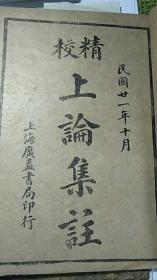 民國廿一年十月
精校
上論集註
上海廣益書局印行